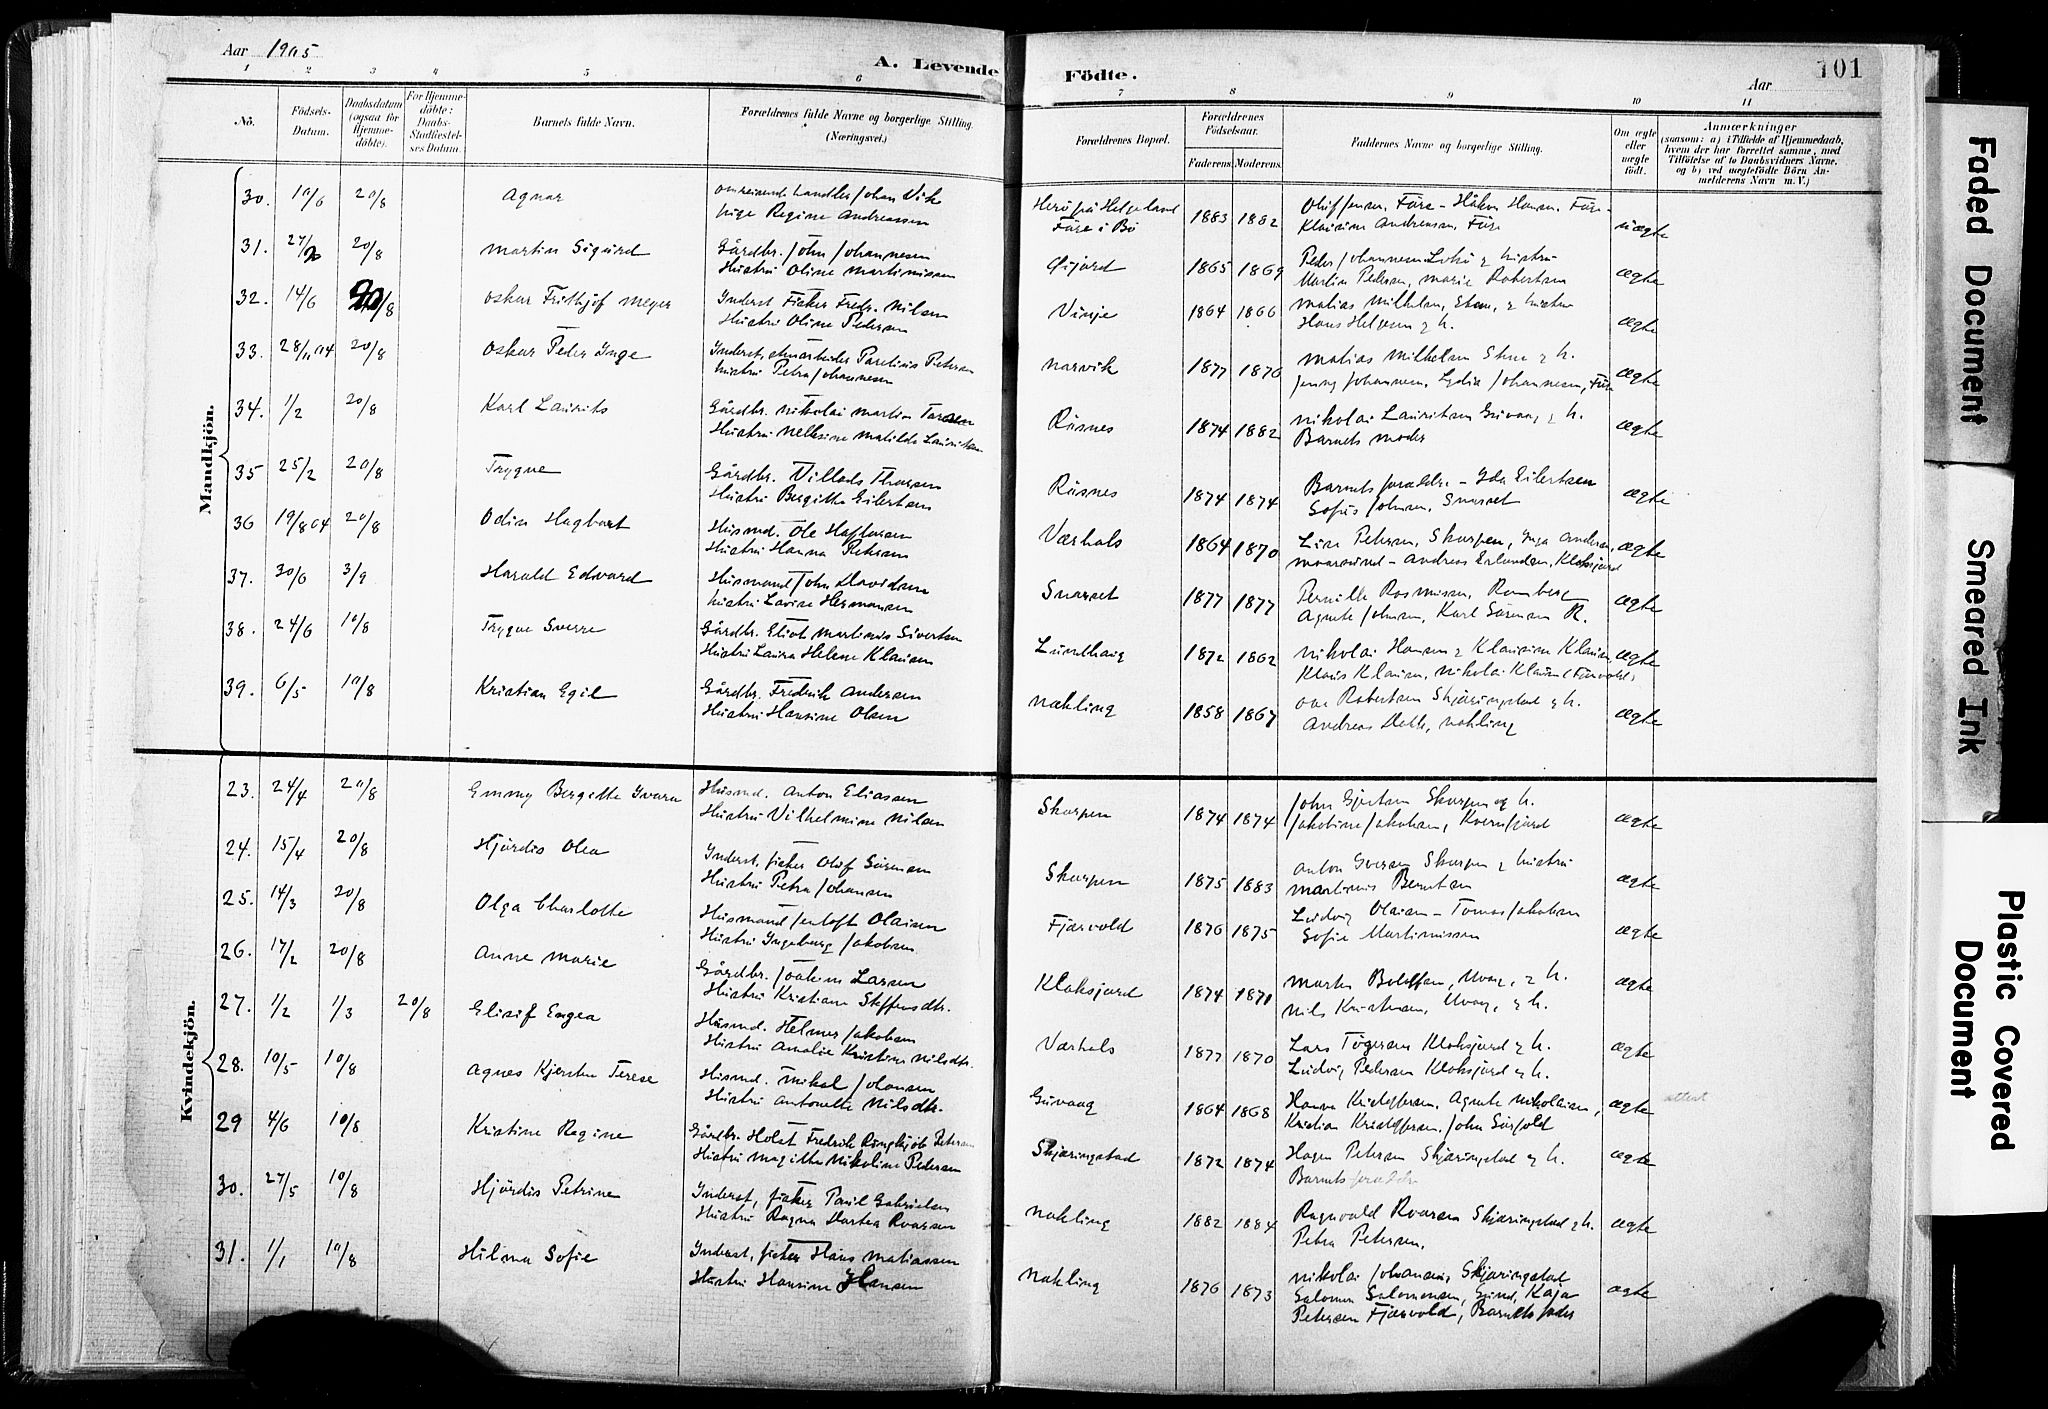 Aar 1905
A. Levende Födte.
Aar
101
1 2 3 4 5 6 7 8 9 10 11
Nô. Födsels-Datum. Daabsdatum (ogsaa for Hjemme-döbte). For Hjemme-döbte: Daabs-Stadfæstel-ses Datum. Barnets fulde Navn. Forældrenes fulde Navne og borgerlige Stilling. (Næringsvei.) Forældrenes Bopæl. Forældrenes Födselsaar. Faderens. Moderens. Faddernes Navne og borgerlige Stilling. Om ægte eller uægte født. Anmærkninger (saasom: a) i Tilfælde af Hjemmedaab, hvem der har forrettet samme, med Tilföielse af to Daabsvidners Navne, og b) ved uægtefödte Börn An-melderens Navn m. V.)
Mandkjön.
30. 10/6 20/8 Agnar Johan Vik Herö på Helgeland 1883 1882 Oluf Jensen, Före - Håkon Hansen, Före - uægte
pige Regine Andreassen Före i Bö Klausine Andreasen, Före
31. 20/8 Martin Sigurd Gårdbr. John Johannesen 1865 1869 Peder Johannesen & hustru ægte
Hustru Oline Martinussen Martin Pedersen, Marie Robertsen
32. 14/6 20/8 Oskar Frithjof Meyer Inderst Fisker Fredr. Nilsen Vinje 1864 1866 ægte
Hustru Oline Pedersen Hans Helgesen & h.
33. 28/11 04 20/8 Oskar Peder Inge Inderst, Parelius Petersen Narvik 1877 1870 ægte
hustru Petra Johannesen Jenny Johannesen, Lydia Johannesen, Före
34. 1/2 20/8 Karl Laurits Gårdbr. Nikolai Martin Risnes 1874 1882 Nikolai Lauritsen Guvaag & h. ægte
Hustru Matilde Lauritsen Barnets moder
35 25/2 20/8 Trygve Gårdbr. Villads Risnes 1874 1874 Barnets forældre - Ida Eilertsen ægte
Hustru Bergitte Eilertsen Sofus Johnsen, Snarset
36 19/8 04 20/8 Odin Hagbart Husmd. Ole Haftorsen Værhals 1864 1870 Petersen, Skarpen, Inga Andersen, ægte
Hustru Hanna Petersen Maarsund - Andreas Erlandsen, Kloksjord
37. 30/6 3/9 Harald Edvard Husmand John Davidsen Snarset 1877 1877 Pernille Rasmussen, Ramberg ægte
hustru Lovise Hermansen Agnete Johnsen, Karl Sörensen R.
38. 24/6 10/8 Trygve Sverre Gårdbr. Eliot Martinus Sivertsen Lundhaug 1872 1862 Nikolai Hansen & Klausine Klausen, ægte
Hustru Laura Helene Klausen Klaus Klausen, Nikolai Klausen, Fjærvold
39. 6/5 10/8 Kristian Egil Gårdbr. Fredrik Andersen Nækling 1858 1867 Robertsen Skjæringstad & h. ægte
Hustru Hansine Olsen Andreas
Kvindekjön.
23. 24/4 20/8 Emmy Bergitte Ivara Husmd. Anton Eliassen Skarpen 1874 1874 John Gjertsen Skarpen og h. ægte
Hustru Vilhelmine Nilsen Jakobine Jakobsen, Kvernfjord
24. 15/4 20/8 Hjördis Olea Inderst, fisker Oluf Sörensen Skarpen 1875 1883 Anton Iversen Skarpen & hustru ægte
Hustru Petra Johansen Martinus Berntsen
25. 14/3 20/8 Olga Charlotte Husmand Jentoft Olaisen Fjærvold 1876 1875 Ludvig Olaisen - Tomas Jakobsen ægte
Hustru Ingeborg Jakobsen Sofie Martinussen
26. 17/2 20/8 Anne Marie Gårdbr. Joakim Larsen Kloksjord 1874 1871 ægte
Hustru Kristiane Steffensdtr. Nils Kristensen, & h.
27. 1/2 1/3 20/8 Elisif Engea Husmd. Helmer Jakobsen Værhals 1877 1870 Lars Tögersen Kloksjord & h. ægte
Hustru Amalie Kristine Nilsdtr. Ludvig Pedersen Kloksjord & h.
28. 10/5 10/8 Agnes Kjersten Terese Husmd. Mikal Johansen Guvaag 1864 1868 Hanna Kristoffersen, Agnete Nikolaisen, ægte attest
Hustru Antonette Nilsdtr. Kristian Kristoffersen, John Sörfold
29 4/6 10/8 Kristine Regine Gårdbr. Holst Fredrik Ringkjöb Petersen Skjæringstad 1872 1874 Hagen Petersen Skjæringstad & h. ægte
Hustru Magitta Nikoline Pedersen Barnets forældre
30. 27/5 10/8 Hjördis Petrine Inderst, fisker Paul Gabrielsen Nækling 1882 1884 Ragnvald Roarsen Skjæringstad & h. ægte
Hustru Ragna Dortea Roarsen Petra Petersen.
31. 1/1 10/8 Hilma Sofie Inderst, fisker Hans Matiassen Nækling 1876 1873 Nikolai Johansen, Skjæringstad ægte
Hustru Hansine Hansen Salomon Salomonsen, Kaja
Petersen Fjærvold, Barnets fader
Faded Document
Smeared Ink
Plastic Covered Document